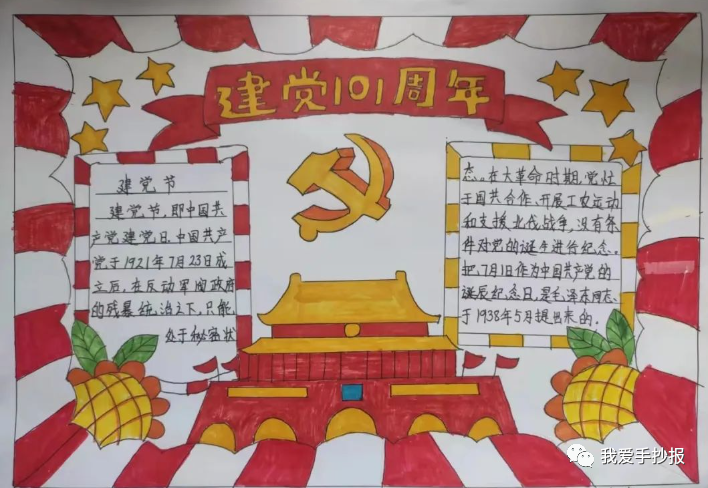 建党101周年
建党节
建党节,即中国共
产党建党日,中国共产
党于1921年7月23日成
立后,在反动军阀政府
的残暴统治之下,只能
处于秘密状
态。在大革命时期,党灶
于国共合作、开展工农运动
和支援北伐战争,没有条
件对党的诞生进行纪念。
把7月1日作为中国共产党的
诞辰纪念日,是毛泽东同志
于1938年5月提出来的。
我爱手抄报